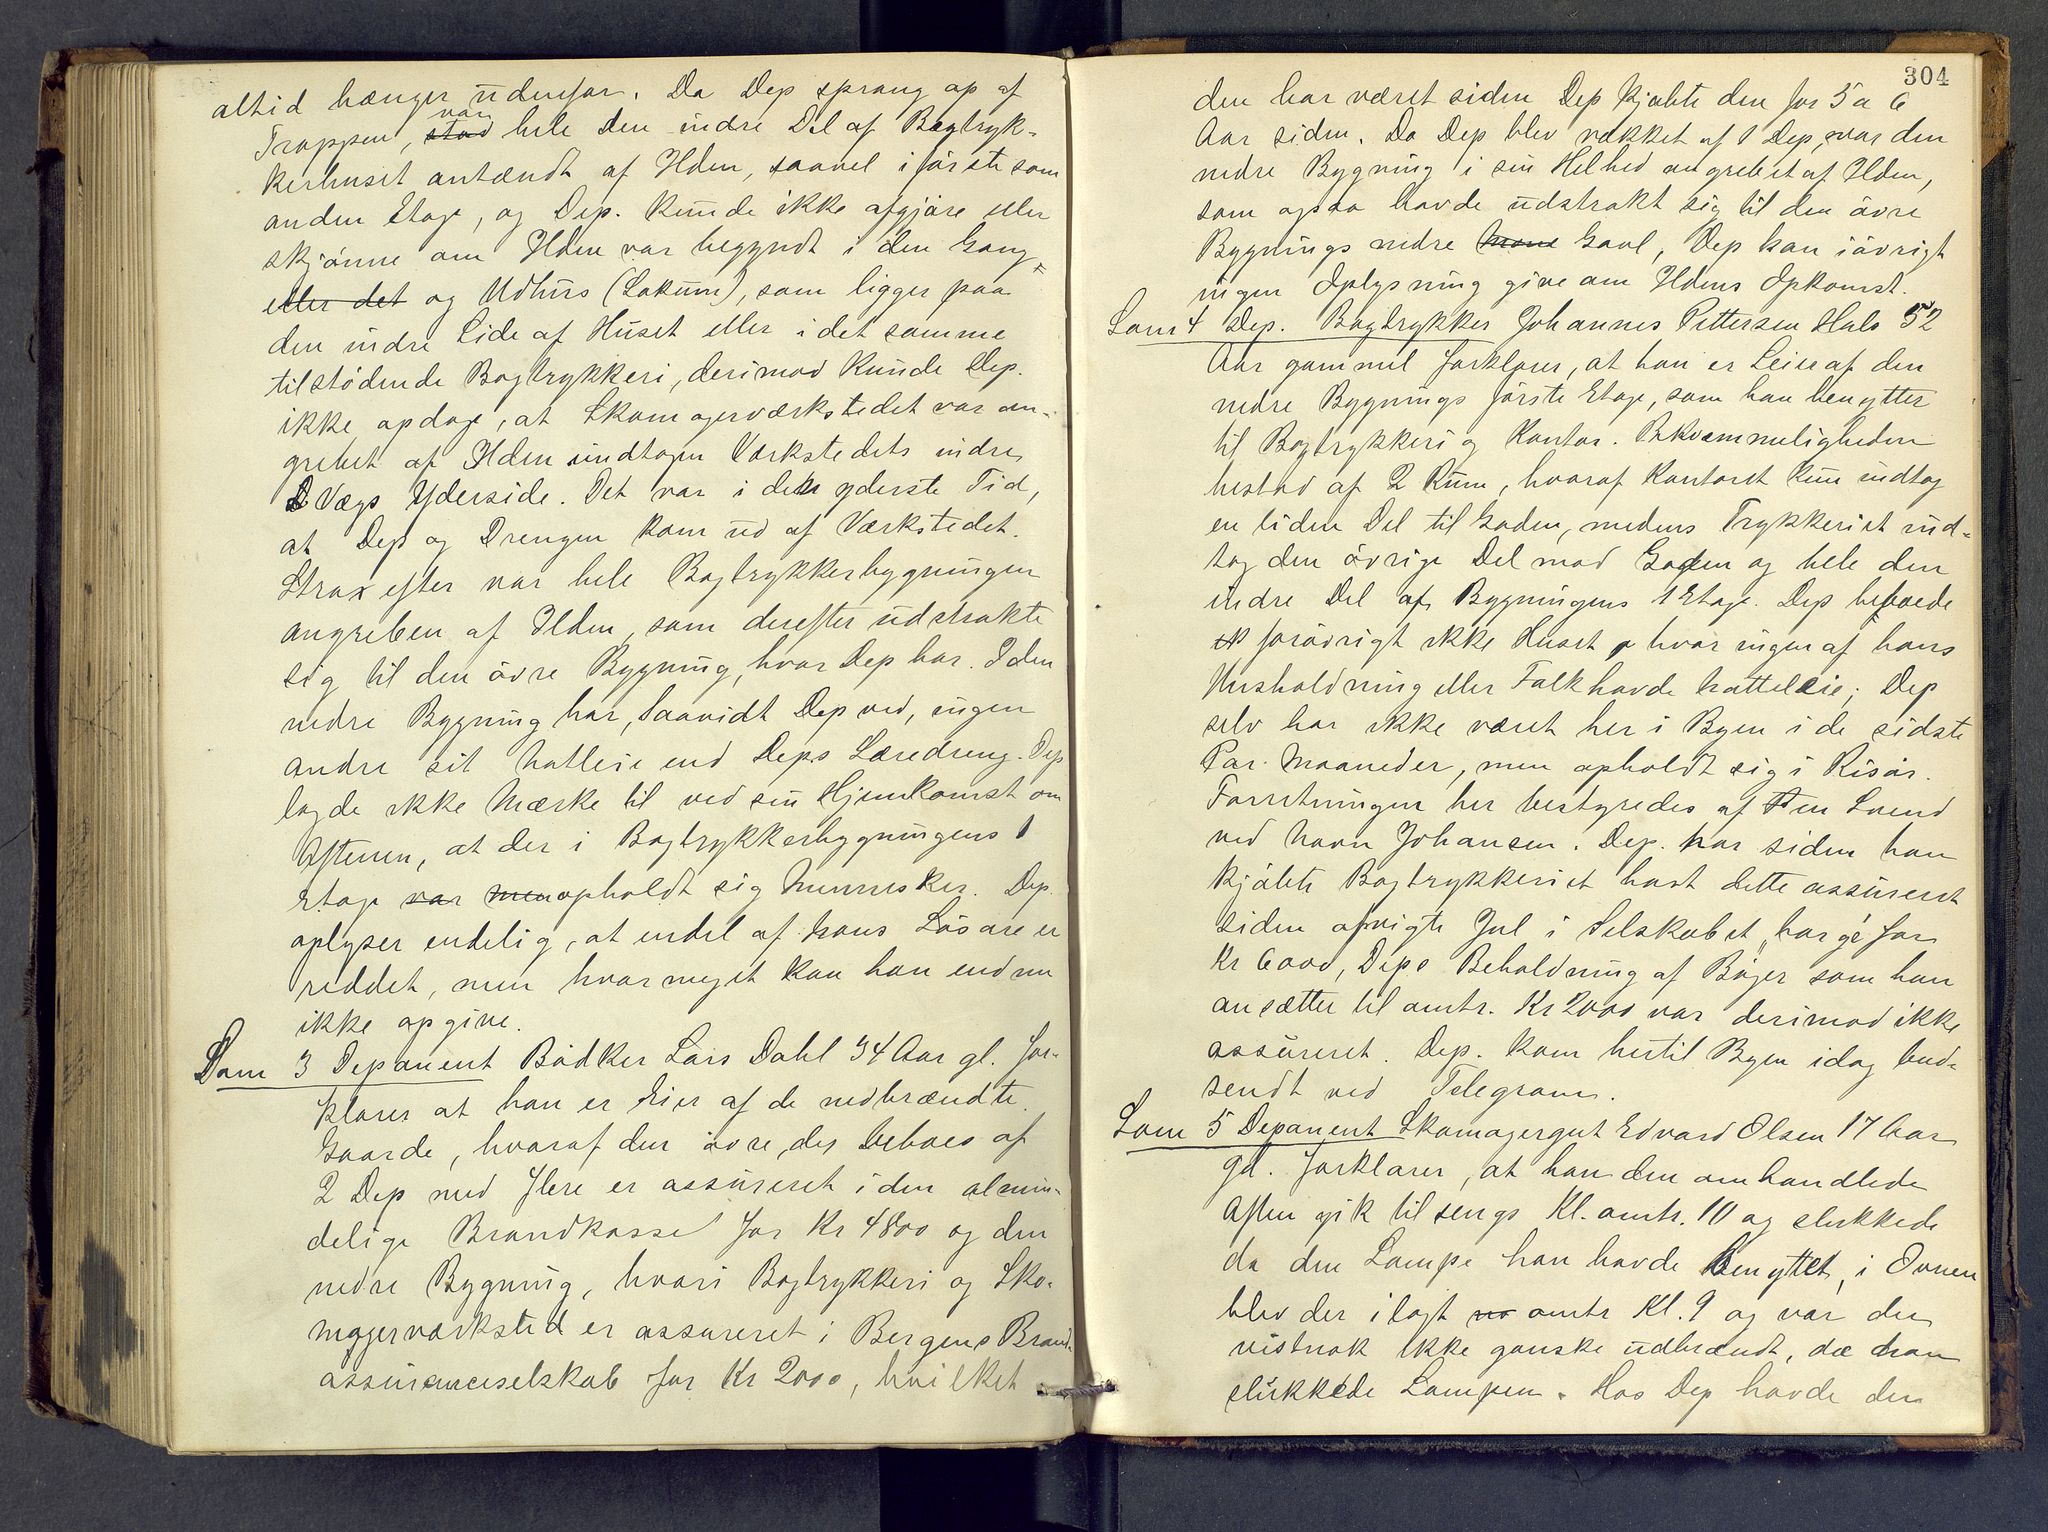 altid hænger udenfor. Da Dep sprang op af
Trappen, stod var hele den indre Del af Bogtryk-
kerhuset antændt af Ilden, saavel i förste som
anden Etage, og Dep. kunde ikke afgjöre eller
skjönne om Ilden var begyndt i den Gang
eller det og Udhus (Lokum), som ligger paa
den indre Side af Huset eller i det samme
tilstödende Bogtrykkeri, derimod kunde Dep.
ikke opdage, at Skomagerværkstedet var an-
grebet af Ilden undtagen Værkstedets indre
Vægs Yderside. Det var i den yderste Tid,
at Dep og Drengen kom ud af Værkstedet.
Strax efter var hele Bogtrykkerbygningen
angreben af Ilden, som derefter udstrakte
sig til den övre Bygning, hvor Dep bor. I den
nedre Bygning har, saavidt Dep ved, ingen
andre sit Natteleie end Deps Læredreng. Dep
lagde ikke Mærke til ved sin Hjemkomst om
Aftenen, at der i Bogtrykkerbygningens 1
Etage var men opholdt sig Mennesker. Dep.
oplyser endelig, at endel af hans Lösöre er
reddet, men hvormeget kan han endnu
ikke opgive.
Som 3 Deponent Bödker Lars Dahl 34 Aar gl. for-
klarer at han er Eier af de nedbrændte
Gaarde, hvoraf den övre, der beboes af
2 Dep med flere er assureret i den almin-
delige Brandkasse for Kr 4800 og den
nedre Bygning, hvori Bogtrykkeri og Sko-
magerværksted er assureret i Bergens Brand-
assuranceselskab for Kr 2000, hvilket
304
den har været siden Dep kjöbte den for 5 a 6
Aar siden. Da Dep blev vækket af 1 Dep, var den
nedre Bygning i sin Helhed angrebet af Ilden,
som ogsaa havde udstrakt sig til den övre
Bygnings nedre Gavl, Dep kan iövrigt
ingen Oplysning give om Ildens Opkomst.
Som 4 Dep. Bogtrykker Johannes Pettersen Hals 52
Aar gammel forklarer, at han er Leier af den
nedre Bygnings förste Etage, som han benytter
til Bogtrykkeri og Kontor. Bekvemmeligheden
bestod af 2 Rum, hvoraf Kontoret kun indtog
en liden Del til Gaden, medens Trykkeriet ind-
tog den övrige Del mod Gaden og hele den
indre Del af Bygningens 1 Etage. Dep beboede
forövrigt ikke Huset, hvor ingen af hans
Husholdning eller Folk havde Natteleie; Dep
selv har ikke været her i Byen i de sidste
Par Maaneder, men opholdt sig i Risör.
Forretningen her bestyredes af en Svend
ved Navn Johansen. Dep. har siden han
kjöbte Bogtrykkeriet havt dette assureret
siden afvigte Jul i Selskabet "Norge" for
Kr 6000, Deps Beholdning af Böger som han
ansætter til omtr. Kr 2000 var derimod ikke
assureret. Dep. kom hertil Byen idag bud-
sendt ved Telegram.
Som 5 Deponent Skomagergut Edvard Olsen 17 Aar
gl. forklarer, at han den omhandlede
Aften gik til sengs Kl. omtr. 10 og slukkede
da den Lampe han havde benyttet, i Ovnen
blev der ilagt omtr Kl. 9 og var der
vistnok ikke ganske udbrændt, da han
slukkede Lampen. Hos Dep havde der